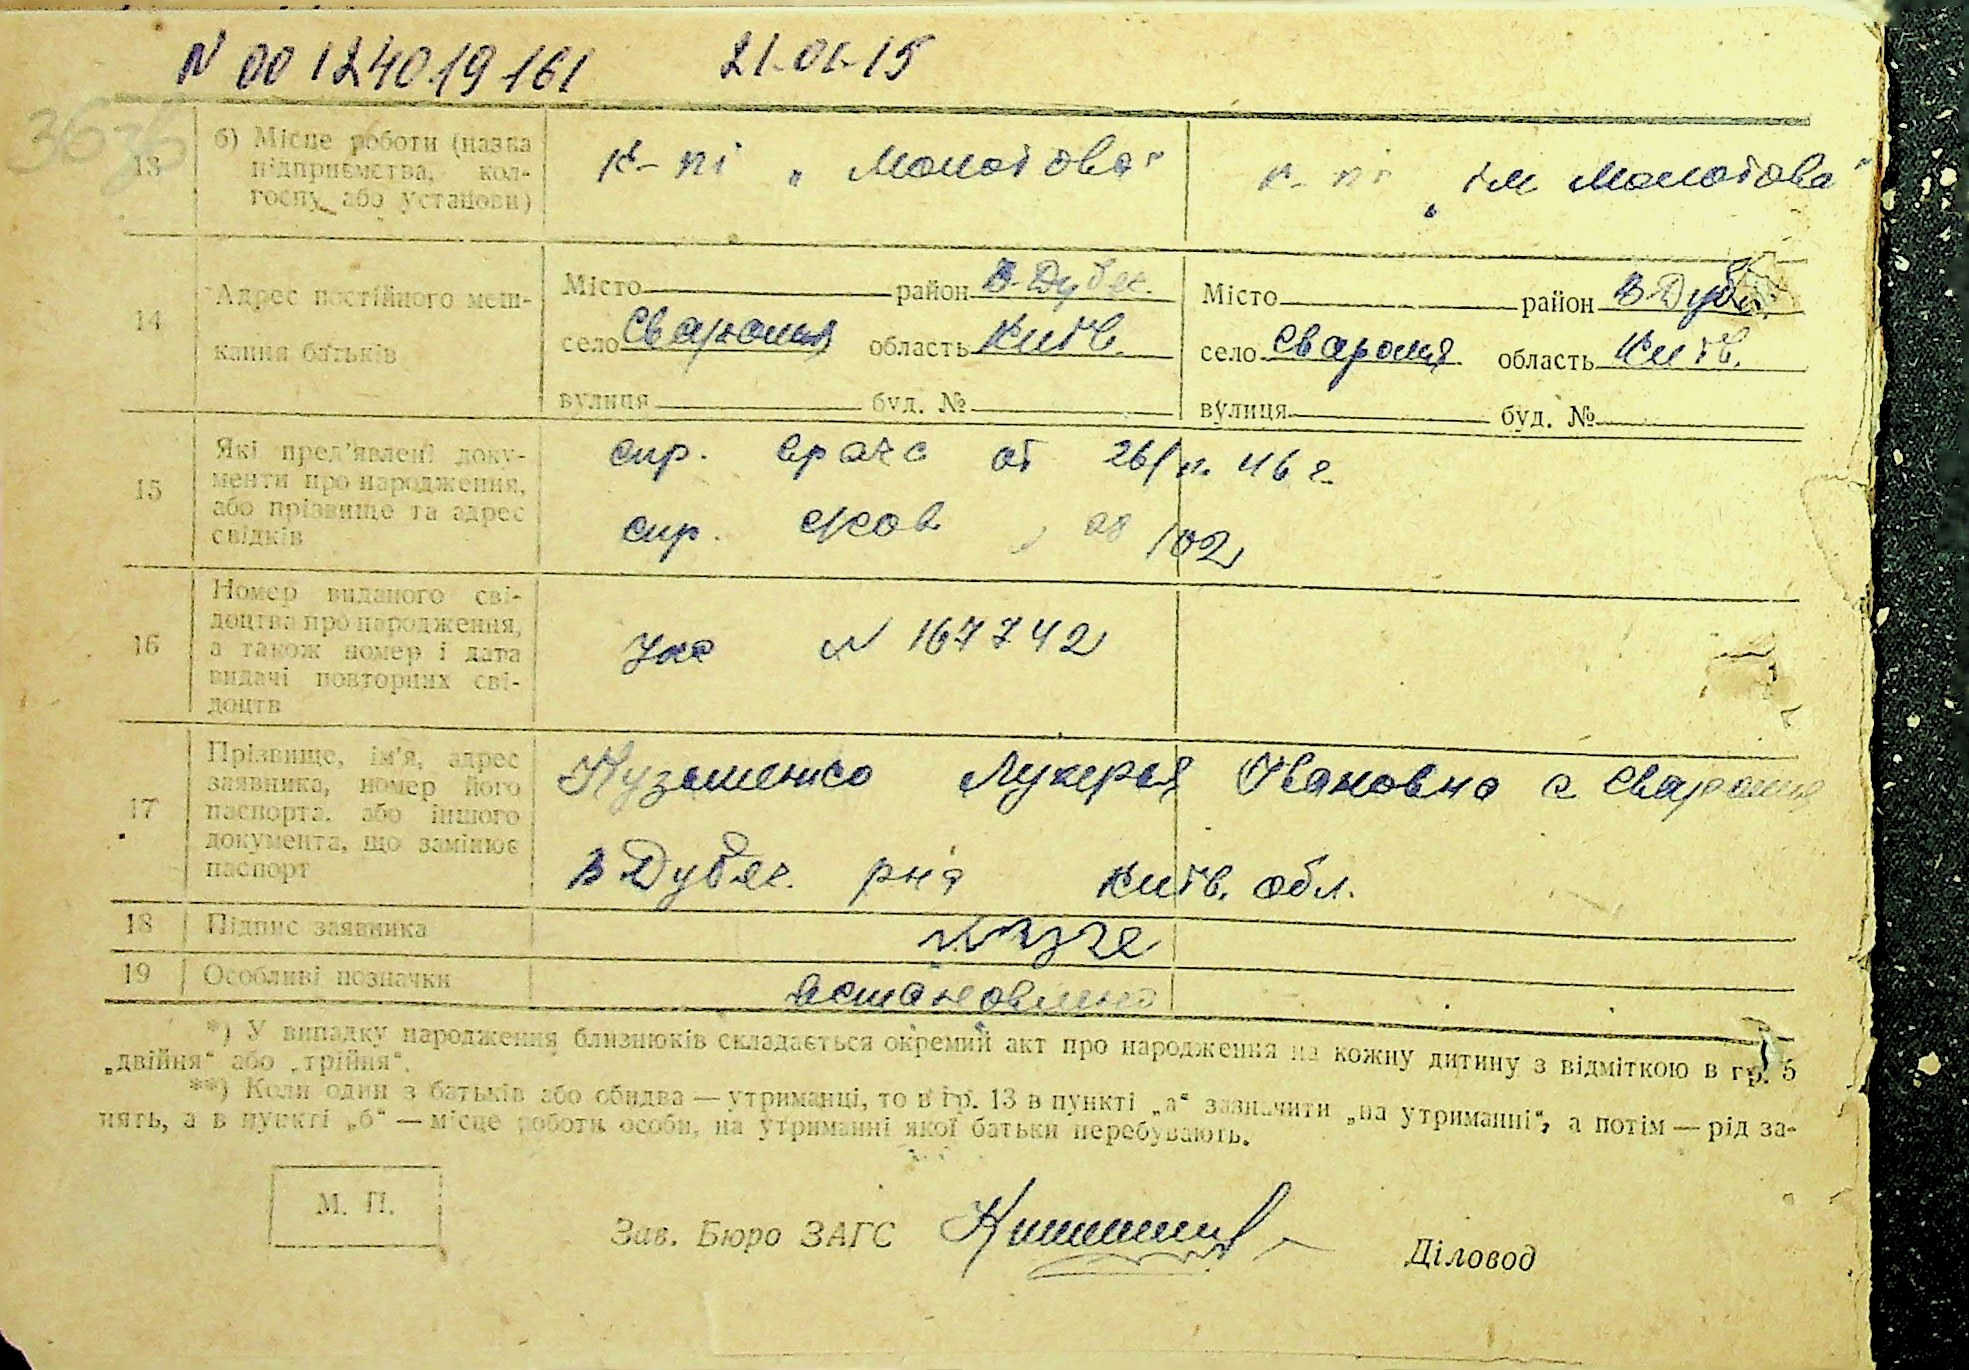 N 00124019161 21.01.15
3636
13 б) Місце роботи (назва підприємства, колгоспу або установи)
к-пі „Молотова" к-пі „ім Молотова"
14 Адрес постійного мешкання батьків
Місто район В Дубеч. Місто район В Дуб.
село Сваромя область Київ. село Сваромя область Київ.
вулиця буд. № вулиця буд. №
15 Які пред'явлені документи про народження, або прізвище та адрес свідків
спр. врача от 46 г.
спр.
16 Номер виданого свідоцтва про народження, а також номер і дата видачі повторних свідоцтв
N 167742
17 Прізвище, ім'я, адрес заявника, номер його паспорта, або іншого документа, що замінює паспорт
Кузьменко Лукерья Ивановна с Сваромя
В Дубеч. р-на Київ. обл.
18 Підпис заявника
19 Особливі позначки
встановлено
*) У випадку народження близнюків складається окремий акт про народження на кожну дитину з відміткою в гр. 5
„двійня" або „трійня".
**) Коли один з батьків або обидва — утриманці, то в гр. 13 в пункті „а" зазначити „на утриманні", а потім — рід за-
нять, а в пункті „б" — місце роботи особи, на утриманні якої батьки перебувають.
М. П.
Зав. Бюро ЗАГС Діловод